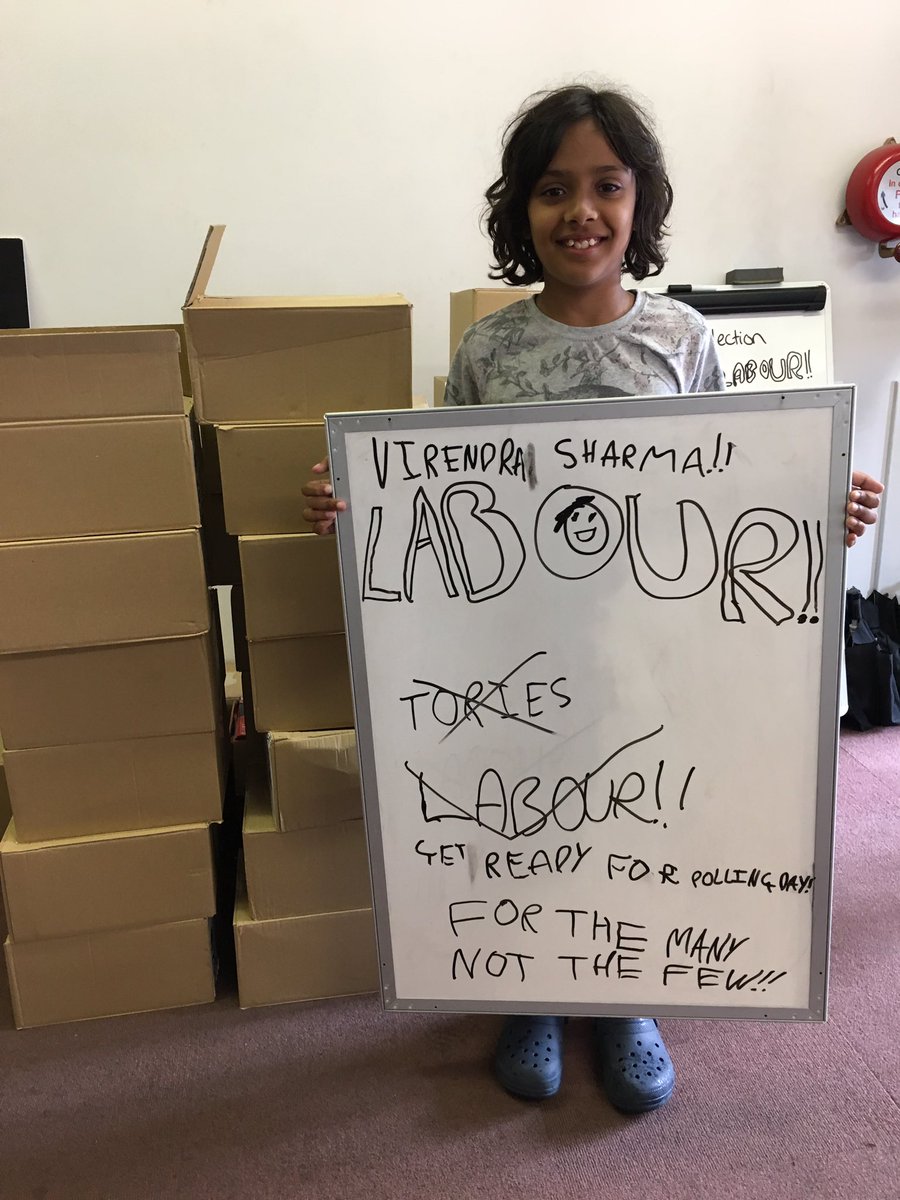 lection
LABOUR!!
VIRENDRA SHARMA!!
LABOUR!!
TORIES
LABOUR!!
GET READY FOR POLLING DAY!
FOR THE MANY
NOT THE FEW!!!